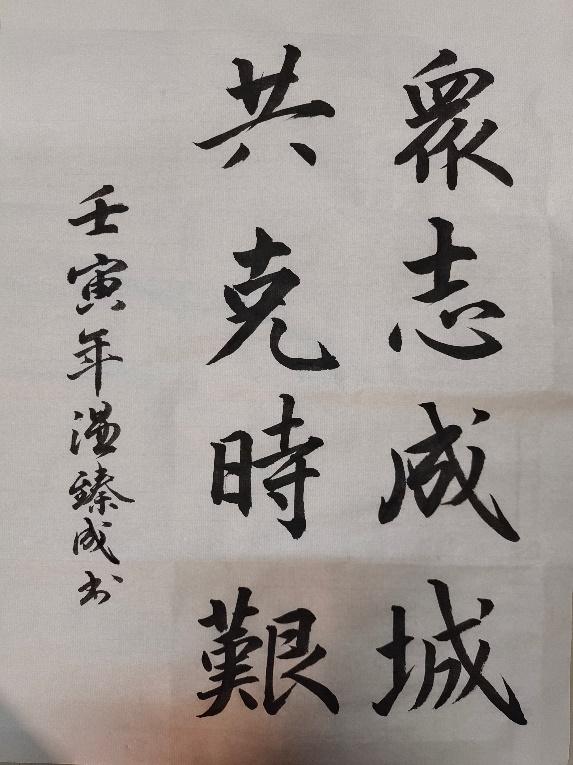 眾志成城
共克時艱
壬寅年温臻成书